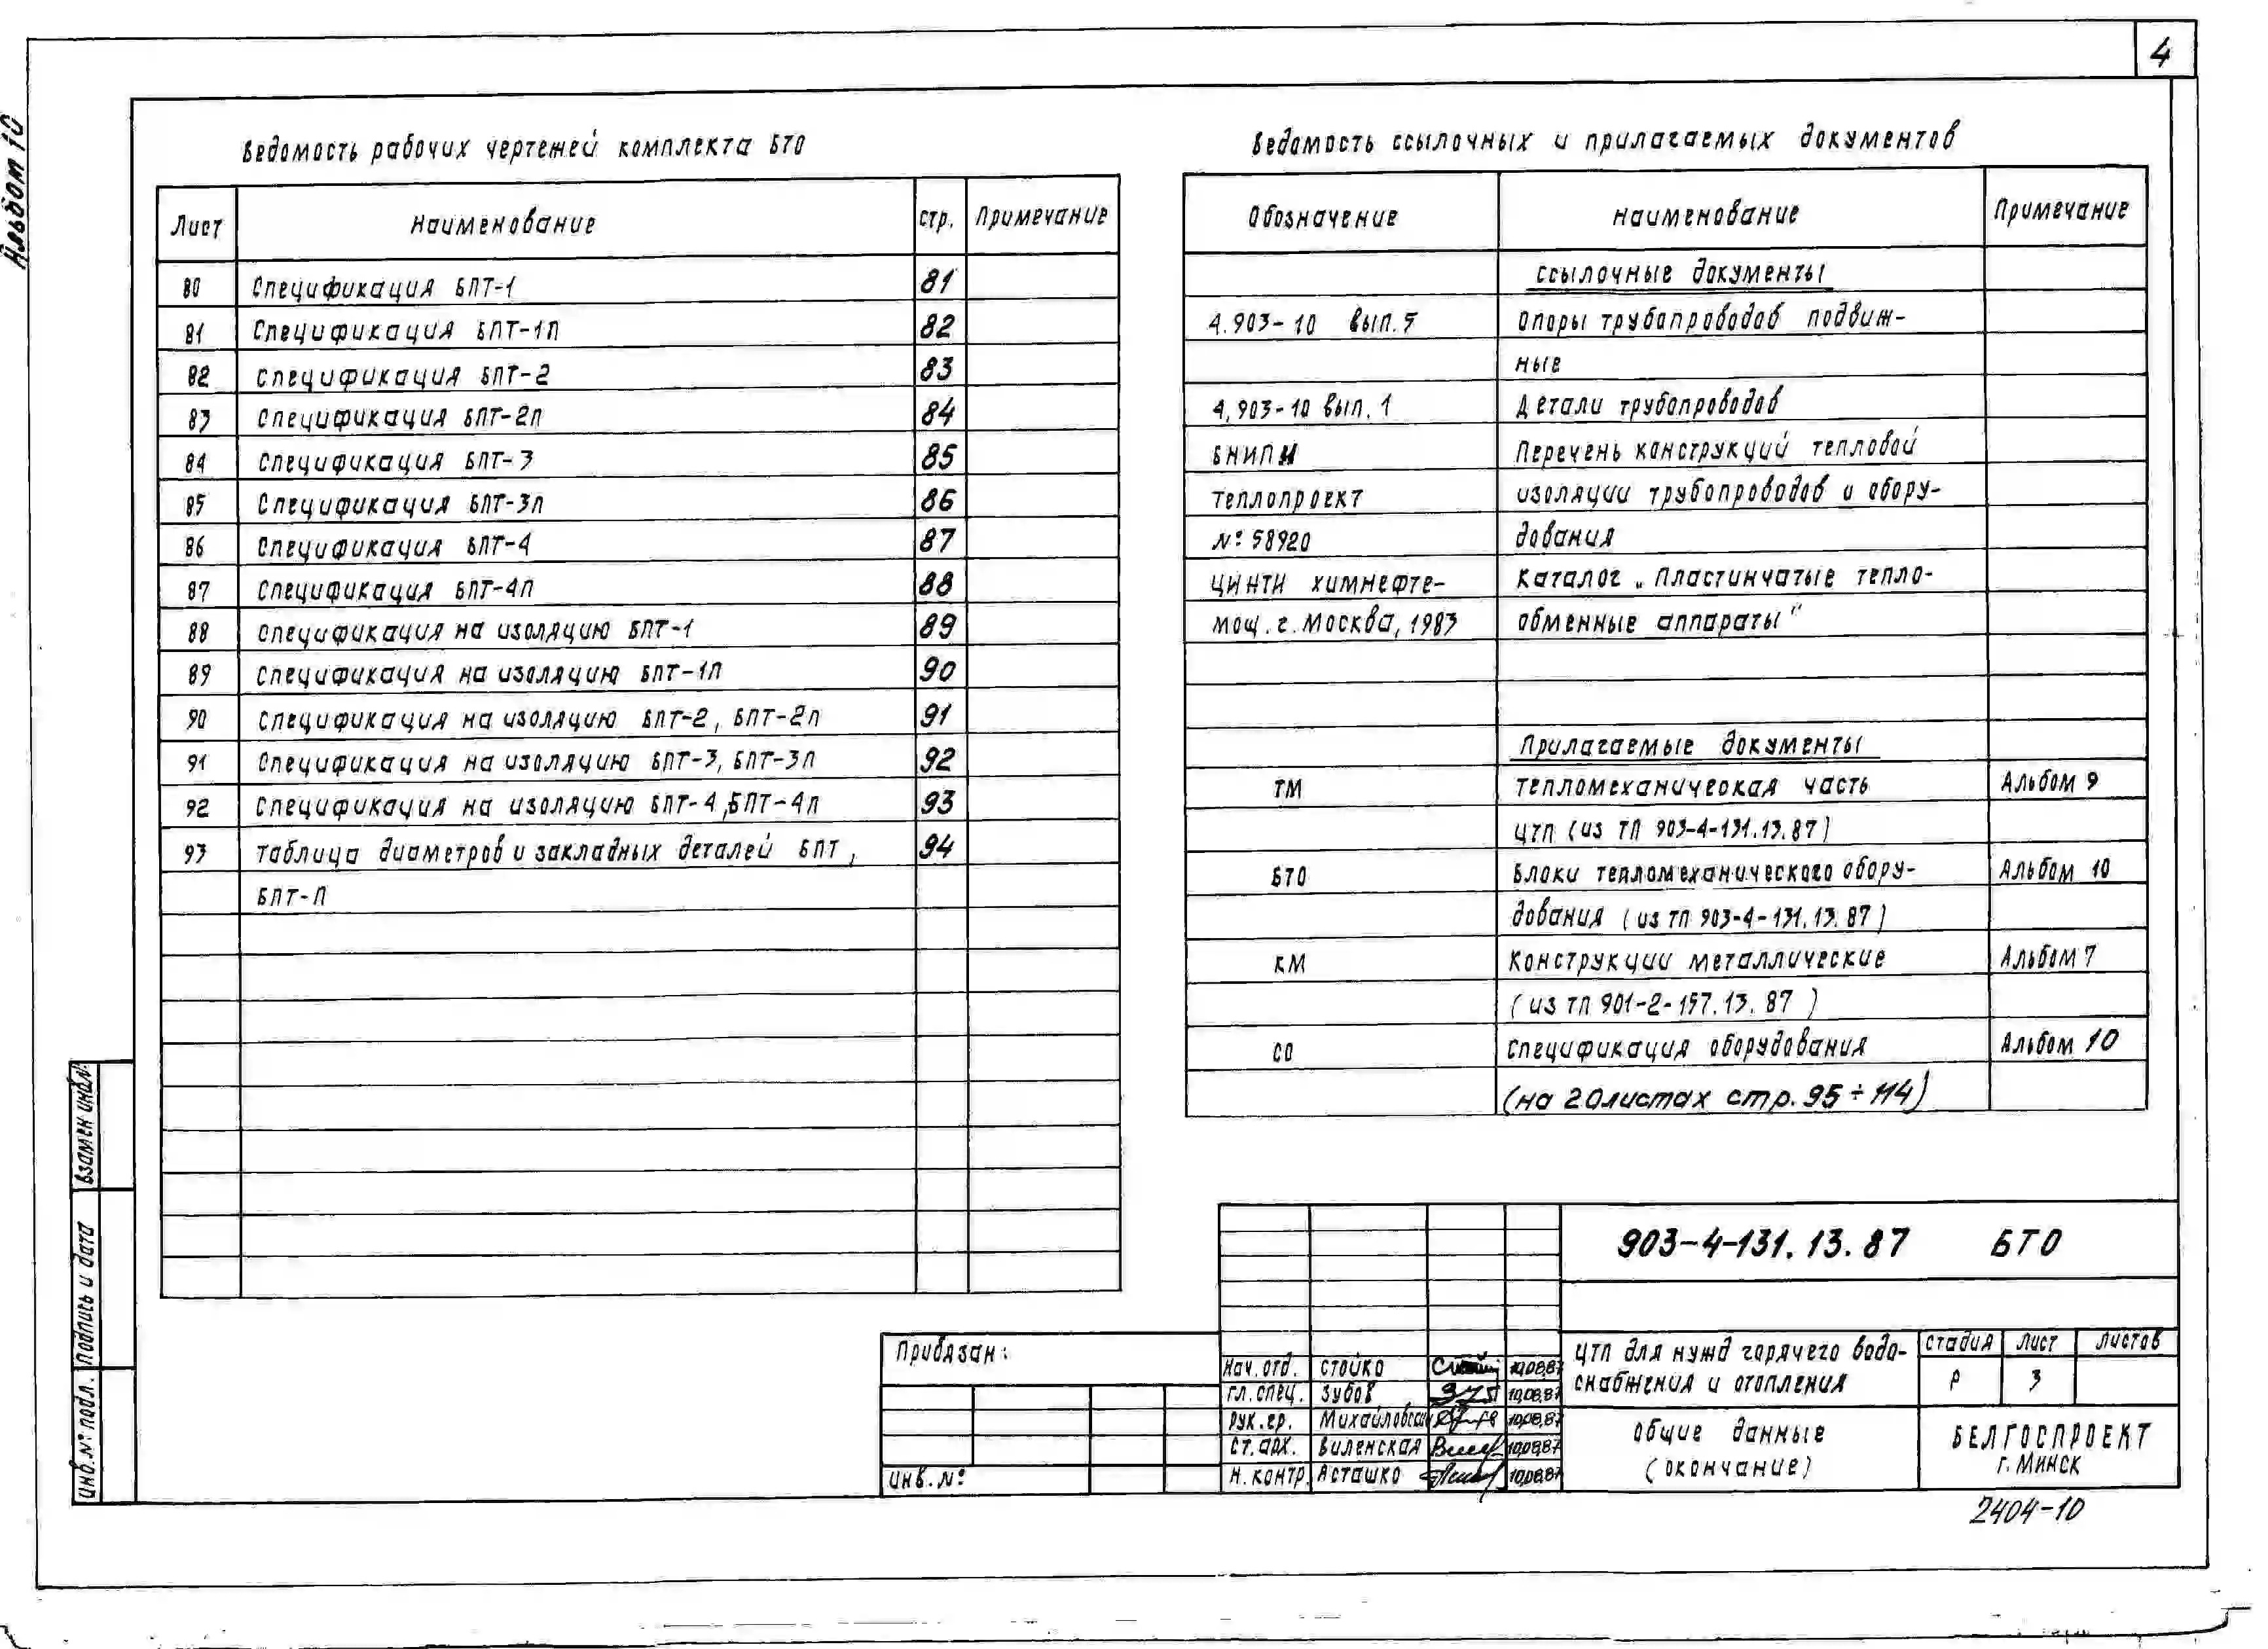 4
Альбом 10
Ведомость рабочих чертежей комплекта БТО
Лист Наименование стр. Примечание
80 Спецификация БПТ-1 81
81 Спецификация БПТ-1П 82
82 Спецификация БПТ-2 83
83 Спецификация БПТ-2П 84
84 Спецификация БПТ-3 85
85 Спецификация БПТ-3П 86
86 Спецификация БПТ-4 87
87 Спецификация БПТ-4П 88
88 Спецификация на изоляцию БПТ-1 89
89 Спецификация на изоляцию БПТ-1П 90
90 Спецификация на изоляцию БПТ-2, БПТ-2П 91
91 Спецификация на изоляцию БПТ-3, БПТ-3П 92
92 Спецификация на изоляцию БПТ-4, БПТ-4П 93
93 Таблица диаметров и закладных деталей БПТ, 94
БПТ-П
Ведомость ссылочных и прилагаемых документов
Обозначение Наименование Примечание
Ссылочные документы
4.903-10 вып.5 Опоры трубопроводов подвиж-
ные
4.903-10 вып.1 Детали трубопроводов
БНИПИ Перечень конструкций тепловой
Теплопроект изоляции трубопроводов и обору-
№ 58920 дования
ЦИНТИ химнефте- Каталог „Пластинчатые тепло-
мощ. г. Москва, 1983 обменные аппараты"
Прилагаемые документы
ТМ Тепломеханическая часть Альбом 9
ЦТП (из ТП 903-4-131.13.87)
БТО Блоки тепломеханического обору- Альбом 10
дования (из ТП 903-4-131.13.87)
КМ Конструкции металлические Альбом 7
(из ТП 901-2-157.13.87)
СО Спецификация оборудования Альбом 10
(на 20 листах стр. 95÷114)
Взамен инв.№
Подпись и дата
Инв.№ подл.
Привязан:
Инв.№
Нач. отд. Стойко 10.08.87
Гл. спец. Зубов 10.08.87
Рук. гр. Михайловская 10.08.87
Ст. арх. Виленская 10.08.87
Н. контр. Асташко 10.08.87
903-4-131.13.87 БТО
ЦТП для нужд горячего водо-
снабжения и отопления
Стадия Лист Листов
Р 3
Общие данные
(окончание)
БЕЛГОСПРОЕКТ
г. Минск
2404-10